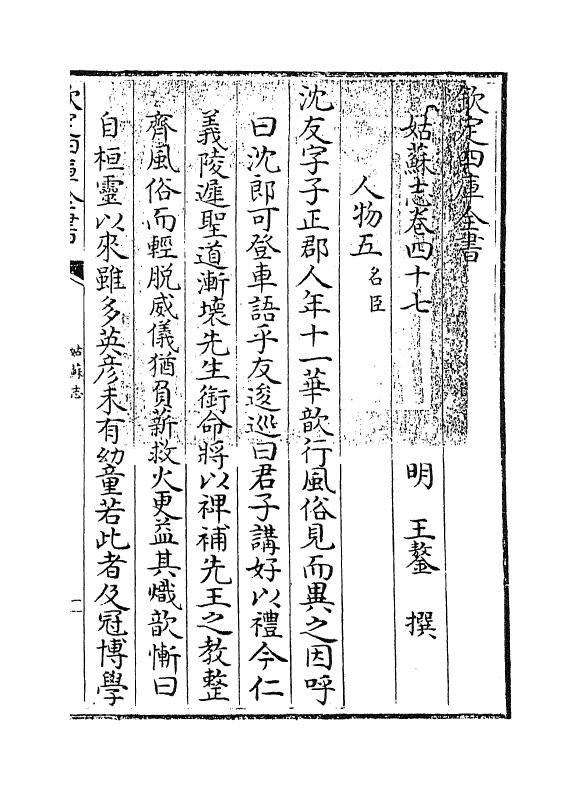 欽定四庫全書
姑蘇志卷四十七
明 王鏊 撰
人物五 名臣
沈友字子正郡人年十一華歆行風俗見而異之因呼
曰沈郎可登車語乎友逡巡曰君子講好以禮今仁
義陵遲聖道漸壊先生銜命將以裨補先王之教整
齊風俗而輕脱威儀猶負薪救火更益其熾歆慚曰
自桓靈以來雖多英彦未有幼童若此者及冠博學
欽定四庫全書
姑蘇志